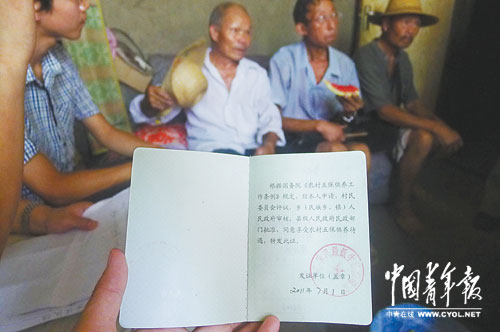 根据国务院《农村五保供养工
作条例》规定，经本人申请，村民
委员会评议，乡（民族乡、镇）人
民政府审核，县级人民政府民政部
门批准，同意享受农村五保供养待
遇，特发此证。
发证单位（盖章）
2011年7月1日
中国青年报
中青在线 WWW.CYOL.COM